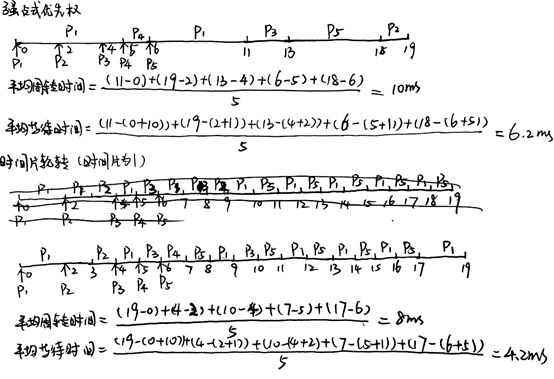 强占式优先权
P1 P4 P1 P3 P5 P2
0 2 4 5 6 11 13 18 19
P1 P2 P3 P4 P5
平均周转时间 = (11-0)+(19-2)+(13-4)+(6-5)+(18-6) / 5 = 10ms
平均等待时间 = (11-(0+10))+(19-(2+1))+(13-(4+2))+(6-(5+1))+(18-(6+5)) / 5 = 6.2ms
时间片轮转(时间片为1)
P1 P2 P1 P3 P1 P3 P1 P5 P1 P5 P1 P5 P1 P5
0 2 4 5 6 7 8 9 10 11 12 13 14 15 16 17 18 19
P1 P2 P3 P4 P5
P1 P2 P1 P3 P4 P5 P1 P3 P5 P1 P5 P1 P5 P1 P5 P1
0 2 3 4 5 6 7 8 9 10 11 12 13 14 15 16 17 19
P1 P2 P3 P4 P5
平均周转时间 = (19-0)+(4-2)+(10-4)+(7-5)+(17-6) / 5 = 8ms
平均等待时间 = (19-(0+10))+(4-(2+1))+(10-(4+2))+(7-(5+1))+(17-(6+5)) / 5 = 4.2ms